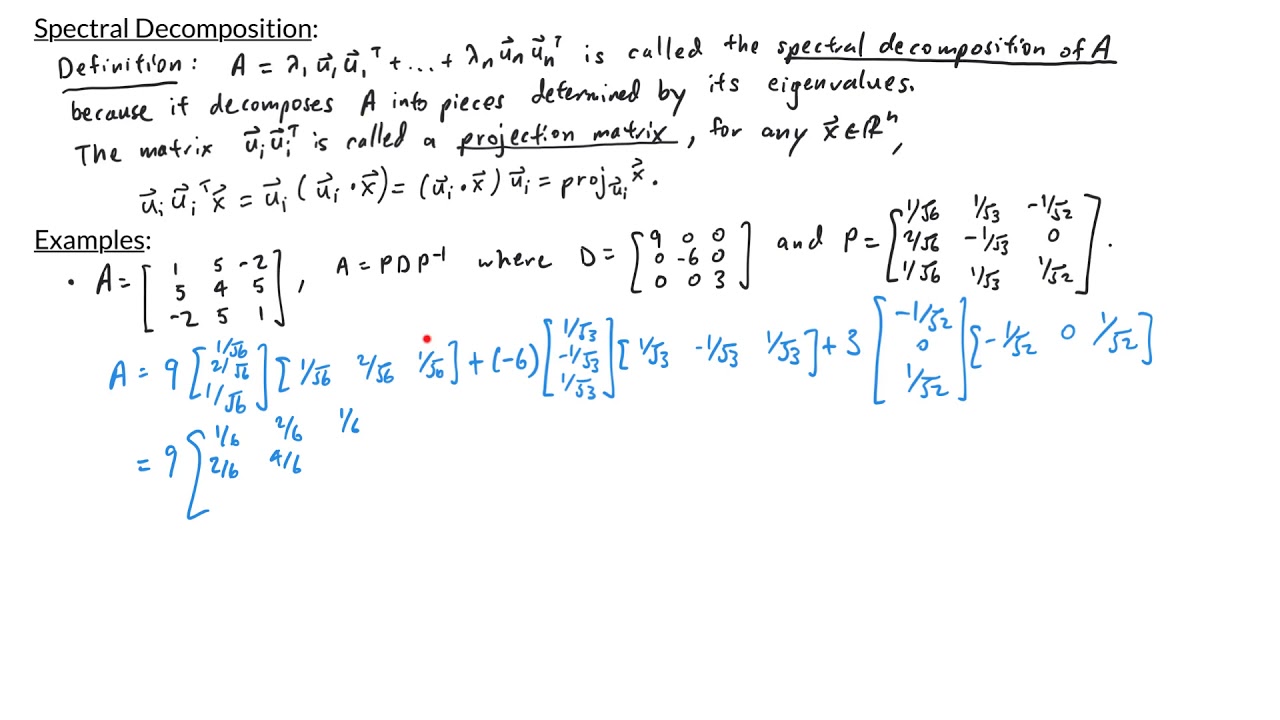 Spectral Decomposition:
Definition: A = λ₁u⃗₁u⃗₁ᵀ + ... + λₙu⃗ₙu⃗ₙᵀ is called the spectral decomposition of A
because if decomposes A into pieces determined by its eigenvalues.
The matrix u⃗ᵢu⃗ᵢᵀ is called a projection matrix, for any x⃗ ∈ ℝⁿ,
u⃗ᵢu⃗ᵢᵀx⃗ = u⃗ᵢ(u⃗ᵢ·x⃗) = (u⃗ᵢ·x⃗)u⃗ᵢ = proj_u⃗ᵢ x⃗.
Examples:
• A = [1 5 -2; 5 4 5; -2 5 1], A = PDP⁻¹ where D = [9 0 0; 0 -6 0; 0 0 3] and P = [1/√6 1/√3 -1/√2; 2/√6 -1/√3 0; 1/√6 1/√3 1/√2].
A = 9 [1/√6; 2/√6; 1/√6] [1/√6 2/√6 1/√6] + (-6) [1/√3; -1/√3; 1/√3] [1/√3 -1/√3 1/√3] + 3 [-1/√2; 0; 1/√2] [-1/√2 0 1/√2]
= 9 [1/6 2/6 1/6
2/6 4/6